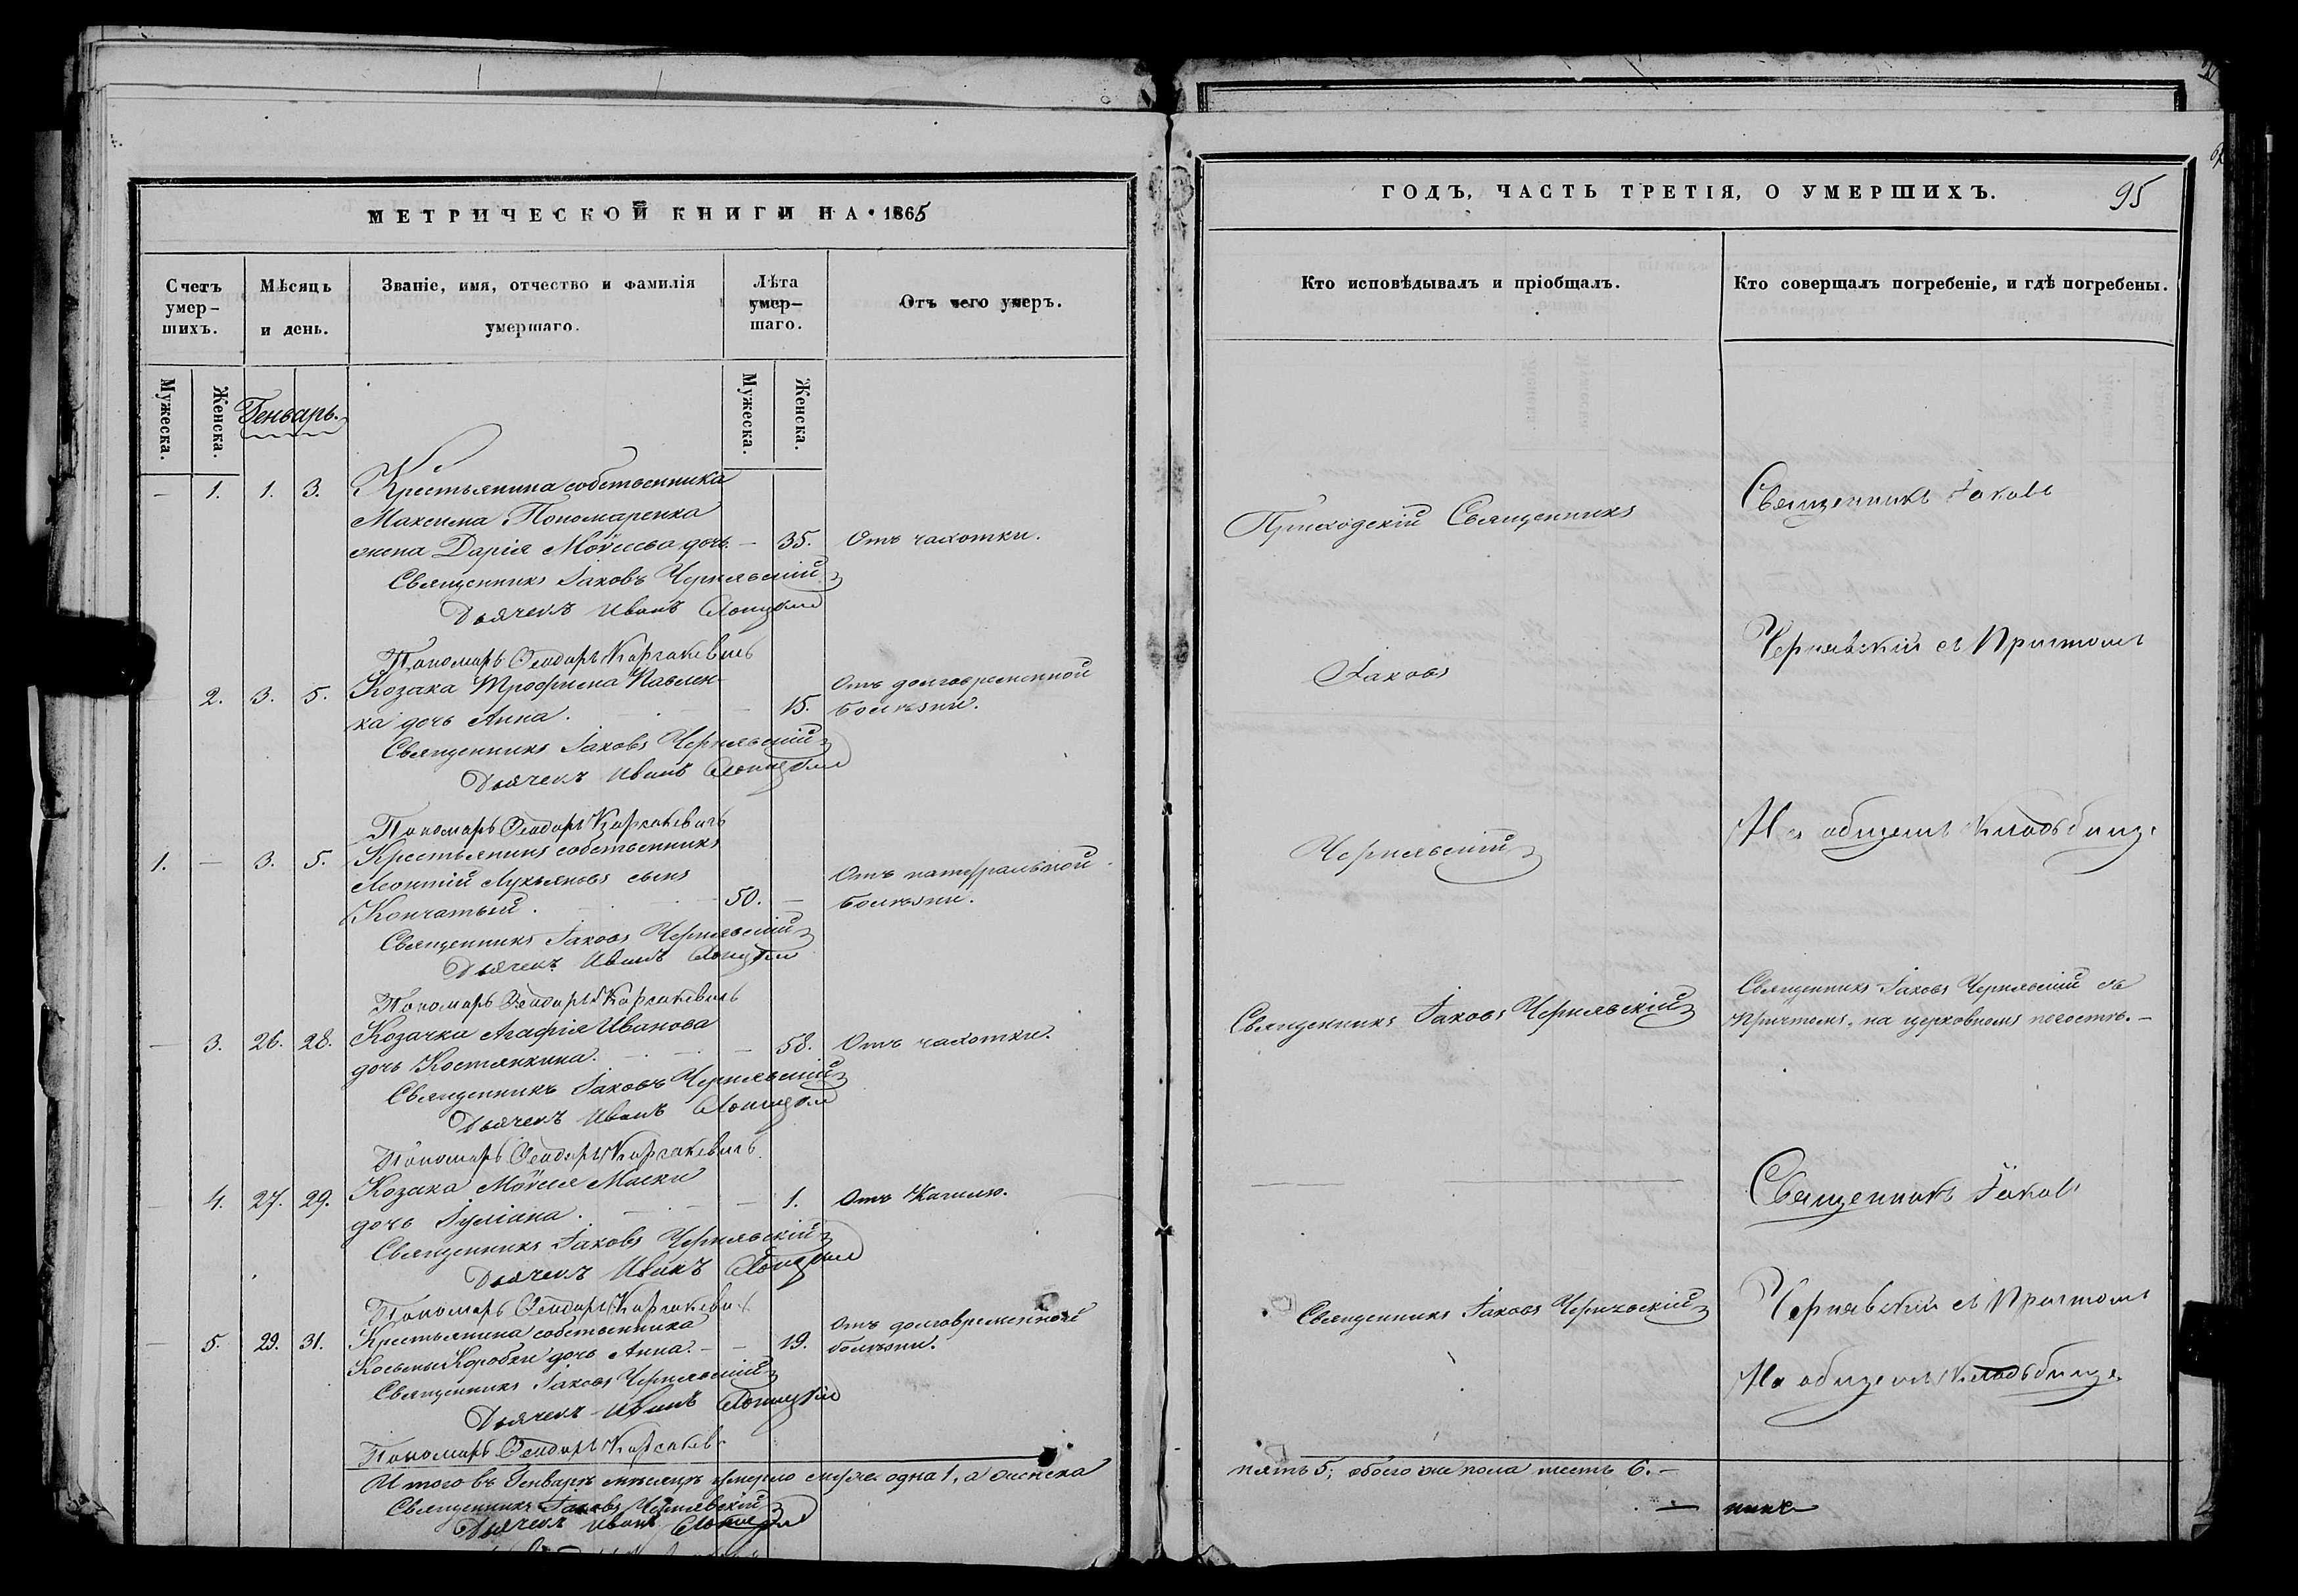 МЕТРИЧЕСКОЙ КНИГИ НА 1865
Счетъ умер-шихъ.
Мѣсяцъ и день.
Званіе, имя, отчество и фамилія умершаго.
Лѣта умер-шаго.
Отъ чего умеръ.
Мужеска.
Женска.
Генварь.
Мужеска.
Женска.
— 1. 1. 3. Крестьянина собственника
Максима Пономаренка
жена Дарія Мойсеева дочь — 35. Отъ чахотки.
Священникъ Іаковъ Чернявскій
Дьячекъ Иванъ
Пономарь Ѳеодоръ
2. 3. 5. Козака Трофима Павлен-
ка дочь Анна. — 15. Отъ долговременной
болѣзни.
Священникъ Іаковъ Чернявскій
Дьячекъ Иванъ
Пономарь Ѳеодоръ
1. — 3. 5. Крестьянинъ собственникъ
Леонтій Лукьяновъ сынъ
Кончатый. 50. — Отъ натуральной
болѣзни.
Священникъ Іаковъ Чернявскій
Дьячекъ Иванъ
Пономарь Ѳеодоръ
— 3. 26. 28. Козачка Агафія Иванова
дочь Костянкина. — 58. Отъ чахотки.
Священникъ Іаковъ Чернявскій
Дьячекъ Иванъ
Пономарь Ѳеодоръ
— 4. 27. 29. Козака Мойсея Маски
дочь Іуліана. — 1. Отъ Кашлю.
Священникъ Іаковъ Чернявскій
Дьячекъ Иванъ
Пономарь Ѳеодоръ
— 5. 29. 31. Крестьянина собственника
Косьмы Коробки дочь Анна. — 19. Отъ долговременной
болѣзни.
Священникъ Іаковъ Чернявскій
Дьячекъ Иванъ
Пономарь Ѳеодоръ
Итого въ Генварѣ мѣсяцѣ умерло мужеск. одна 1, а женска
Священникъ Іаковъ Чернявскій
Дьячекъ Иванъ
ГОДЪ, ЧАСТЬ ТРЕТІЯ, О УМЕРШИХЪ.
95
Кто исповѣдывалъ и пріобщалъ.
Кто совершалъ погребеніе, и гдѣ погребены.
Приходскій Священникъ
Іаковъ
Чернявскій
Священникъ Іаковъ
Чернявскій съ Причтомъ
На общемъ Кладбище
Священникъ Іаковъ Чернявскій
Священникъ Іаковъ Чернявскій съ
Причтомъ, на церковномъ погостѣ. —
Священникъ Іаковъ
Священникъ Іаковъ Чернявскій
Чернявскій съ Причтомъ
На общемъ Кладбище
пять 5; обоего же пола шесть 6. —